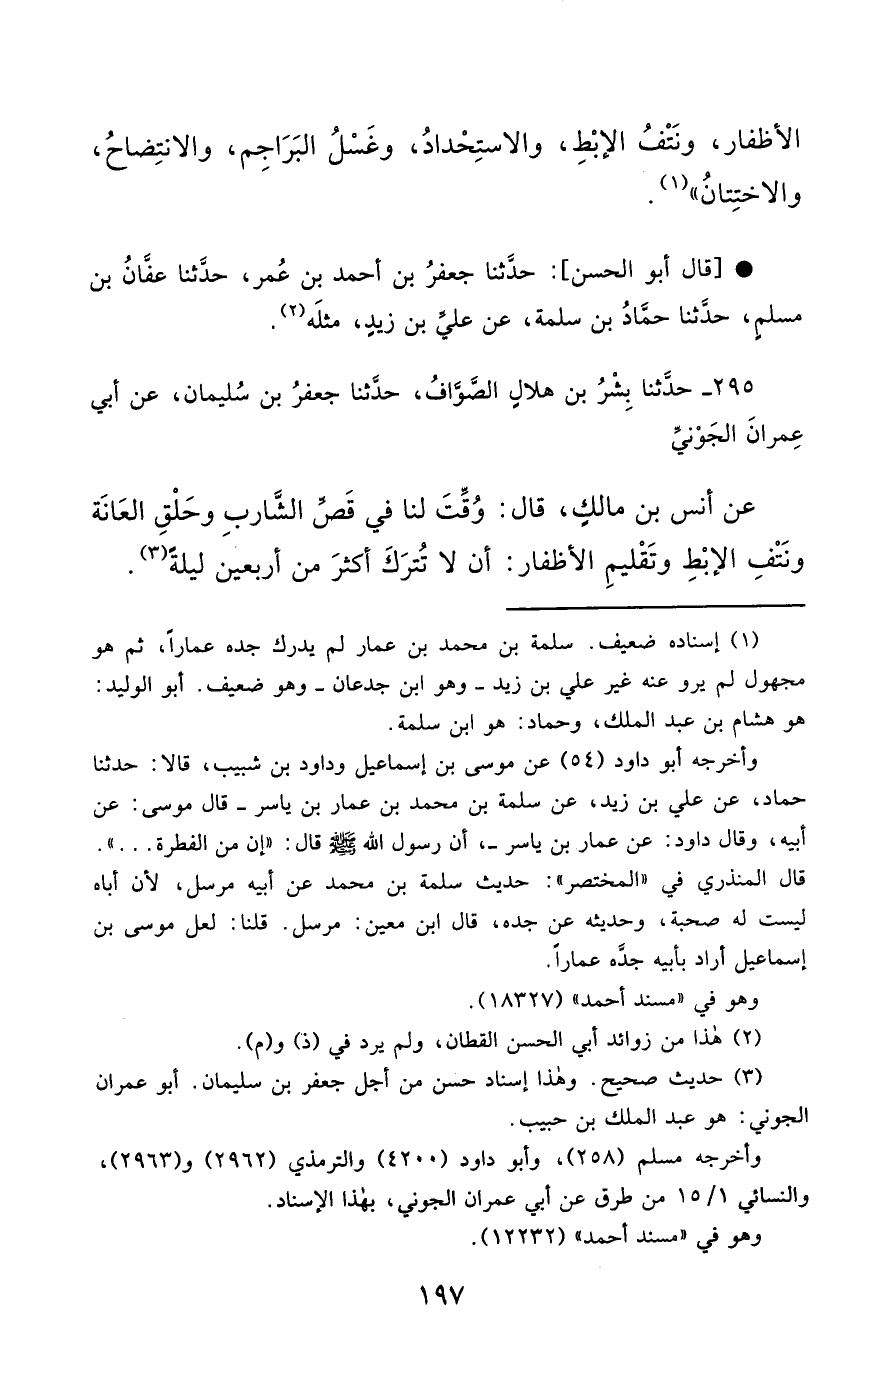 الأظفار، ونَتْفُ الإبْطِ، والاستِحْدادُ، وغَسْلُ البَرَاجِم، والانتِضاحُ،
والاختِتانُ»(١).
● [قال أبو الحسن]: حدَّثنا جعفرُ بن أحمد بن عُمر، حدَّثنا عفَّانُ بن
مسلمٍ، حدَّثنا حمَّادُ بن سلمة، عن عليِّ بن زيدٍ، مثلَه(٢).
٢٩٥ـ حدَّثنا بِشْرُ بن هلالٍ الصَّوَّافُ، حدَّثنا جعفرُ بن سُليمان، عن أبي
عِمرانَ الجَوْنيِّ
عن أنس بن مالكٍ، قال: وُقِّتَ لنا في قَصِّ الشَّاربِ وحَلْقِ العَانَة
ونَتْفِ الإبْطِ وتَقْليمِ الأظفار: أن لا تُترَكَ أكثرَ من أربعين ليلةً(٣).
(١) إسناده ضعيف. سلمة بن محمد بن عمار لم يدرك جده عماراً، ثم هو
مجهول لم يرو عنه غير علي بن زيد ـ وهو ابن جدعان ـ وهو ضعيف. أبو الوليد:
هو هشام بن عبد الملك، وحماد: هو ابن سلمة.
وأخرجه أبو داود (٥٤) عن موسى بن إسماعيل وداود بن شبيب، قالا: حدثنا
حماد، عن علي بن زيد، عن سلمة بن محمد بن عمار بن ياسر ـ قال موسى: عن
أبيه، وقال داود: عن عمار بن ياسر ـ، أن رسول الله ﷺ قال: «إن من الفطرة...».
قال المنذري في «المختصر»: حديث سلمة بن محمد عن أبيه مرسل، لأن أباه
ليست له صحبة، وحديثه عن جده، قال ابن معين: مرسل. قلنا: لعل موسى بن
إسماعيل أراد بأبيه جدَّه عماراً.
وهو في «مسند أحمد» (١٨٣٢٧).
(٢) هٰذا من زوائد أبي الحسن القطان، ولم يرد في (ذ) و(م).
(٣) حديث صحيح. وهٰذا إسناد حسن من أجل جعفر بن سليمان. أبو عمران
الجوني: هو عبد الملك بن حبيب.
وأخرجه مسلم (٢٥٨)، وأبو داود (٤٢٠٠) والترمذي (٢٩٦٢) و(٢٩٦٣)،
والنسائي ١/ ١٥ من طرق عن أبي عمران الجوني، بهٰذا الإسناد.
وهو في «مسند أحمد» (١٢٢٣٢).
١٩٧